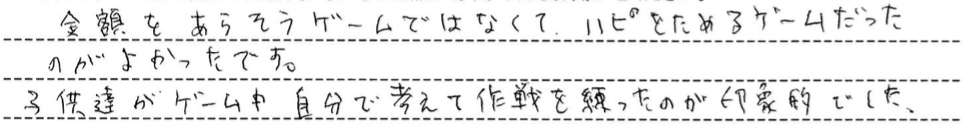 金額をあらそうゲームではなくて、ハピをためるゲームだった
のがよかったです。
子供達がゲーム中自分で考えて作戦を練ったのが印象的でした、